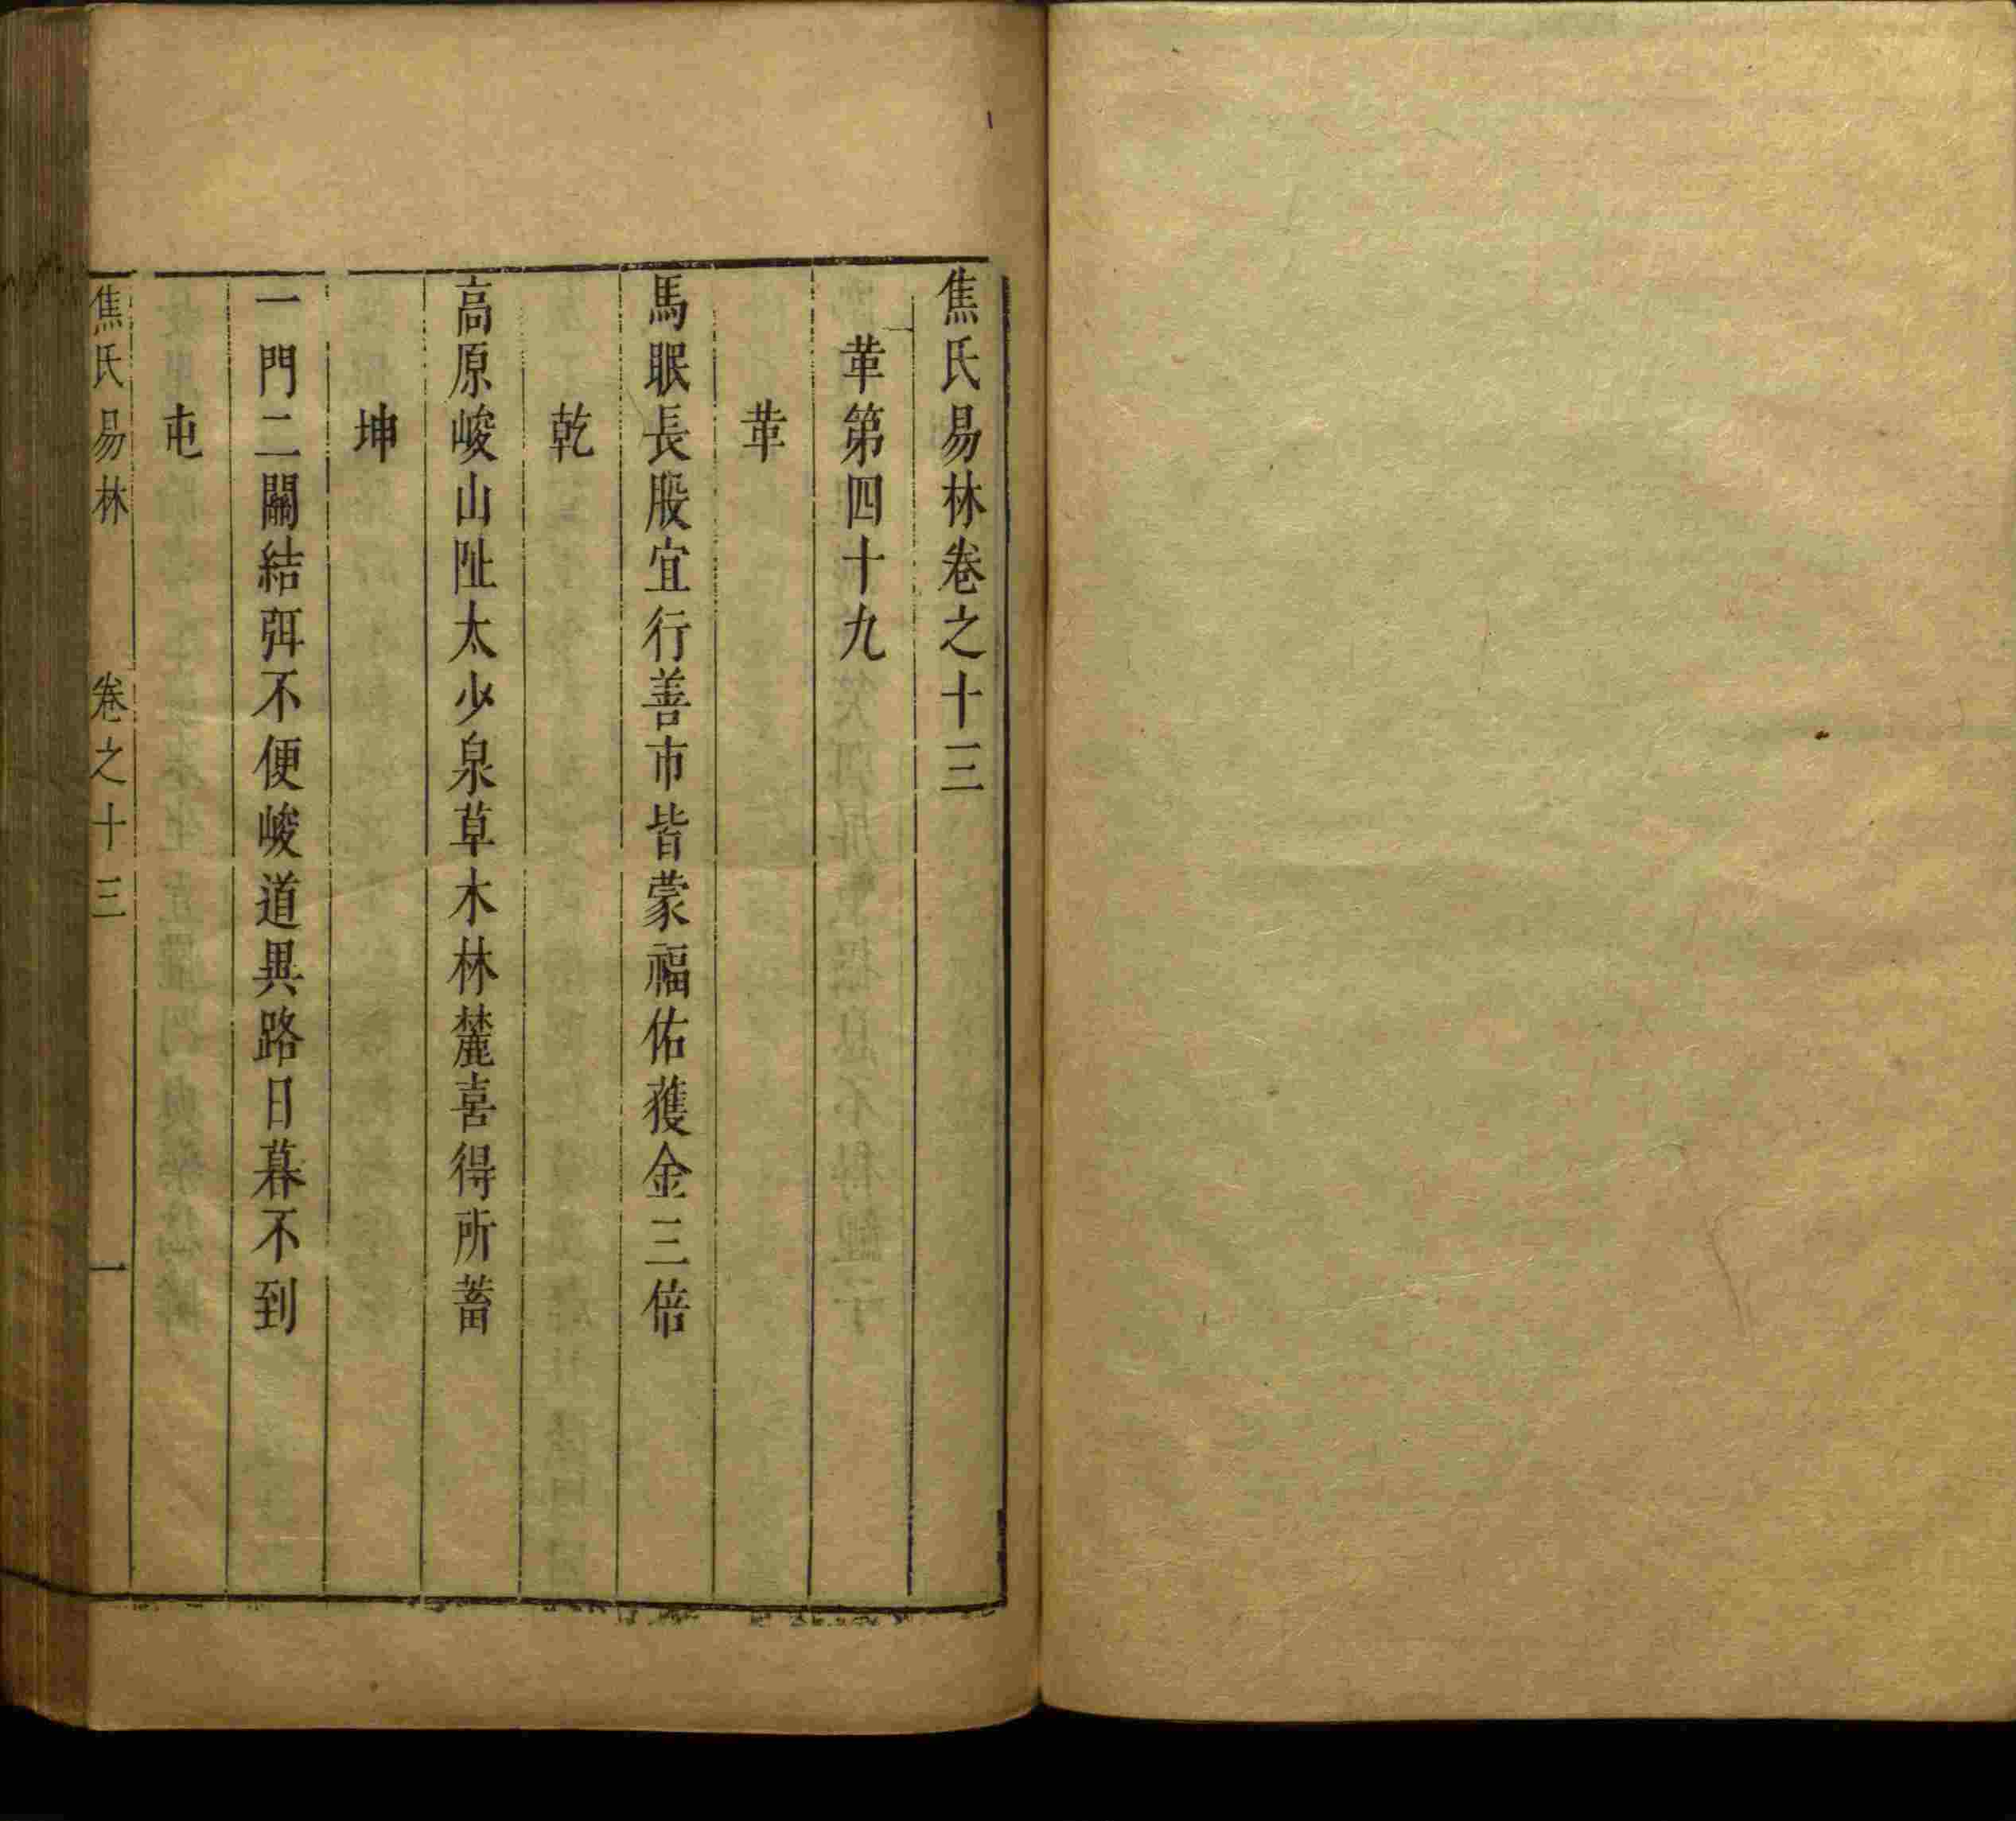 焦氏易林卷之十三
革第四十九
革
馬眠長股宜行善市皆蒙福佑獲金三倍
乾
高原峻山阯太少泉草木林麓喜得所蓄
坤
一門二關結弭不便峻道異路日暮不到
屯
焦氏易林 卷之十三 一